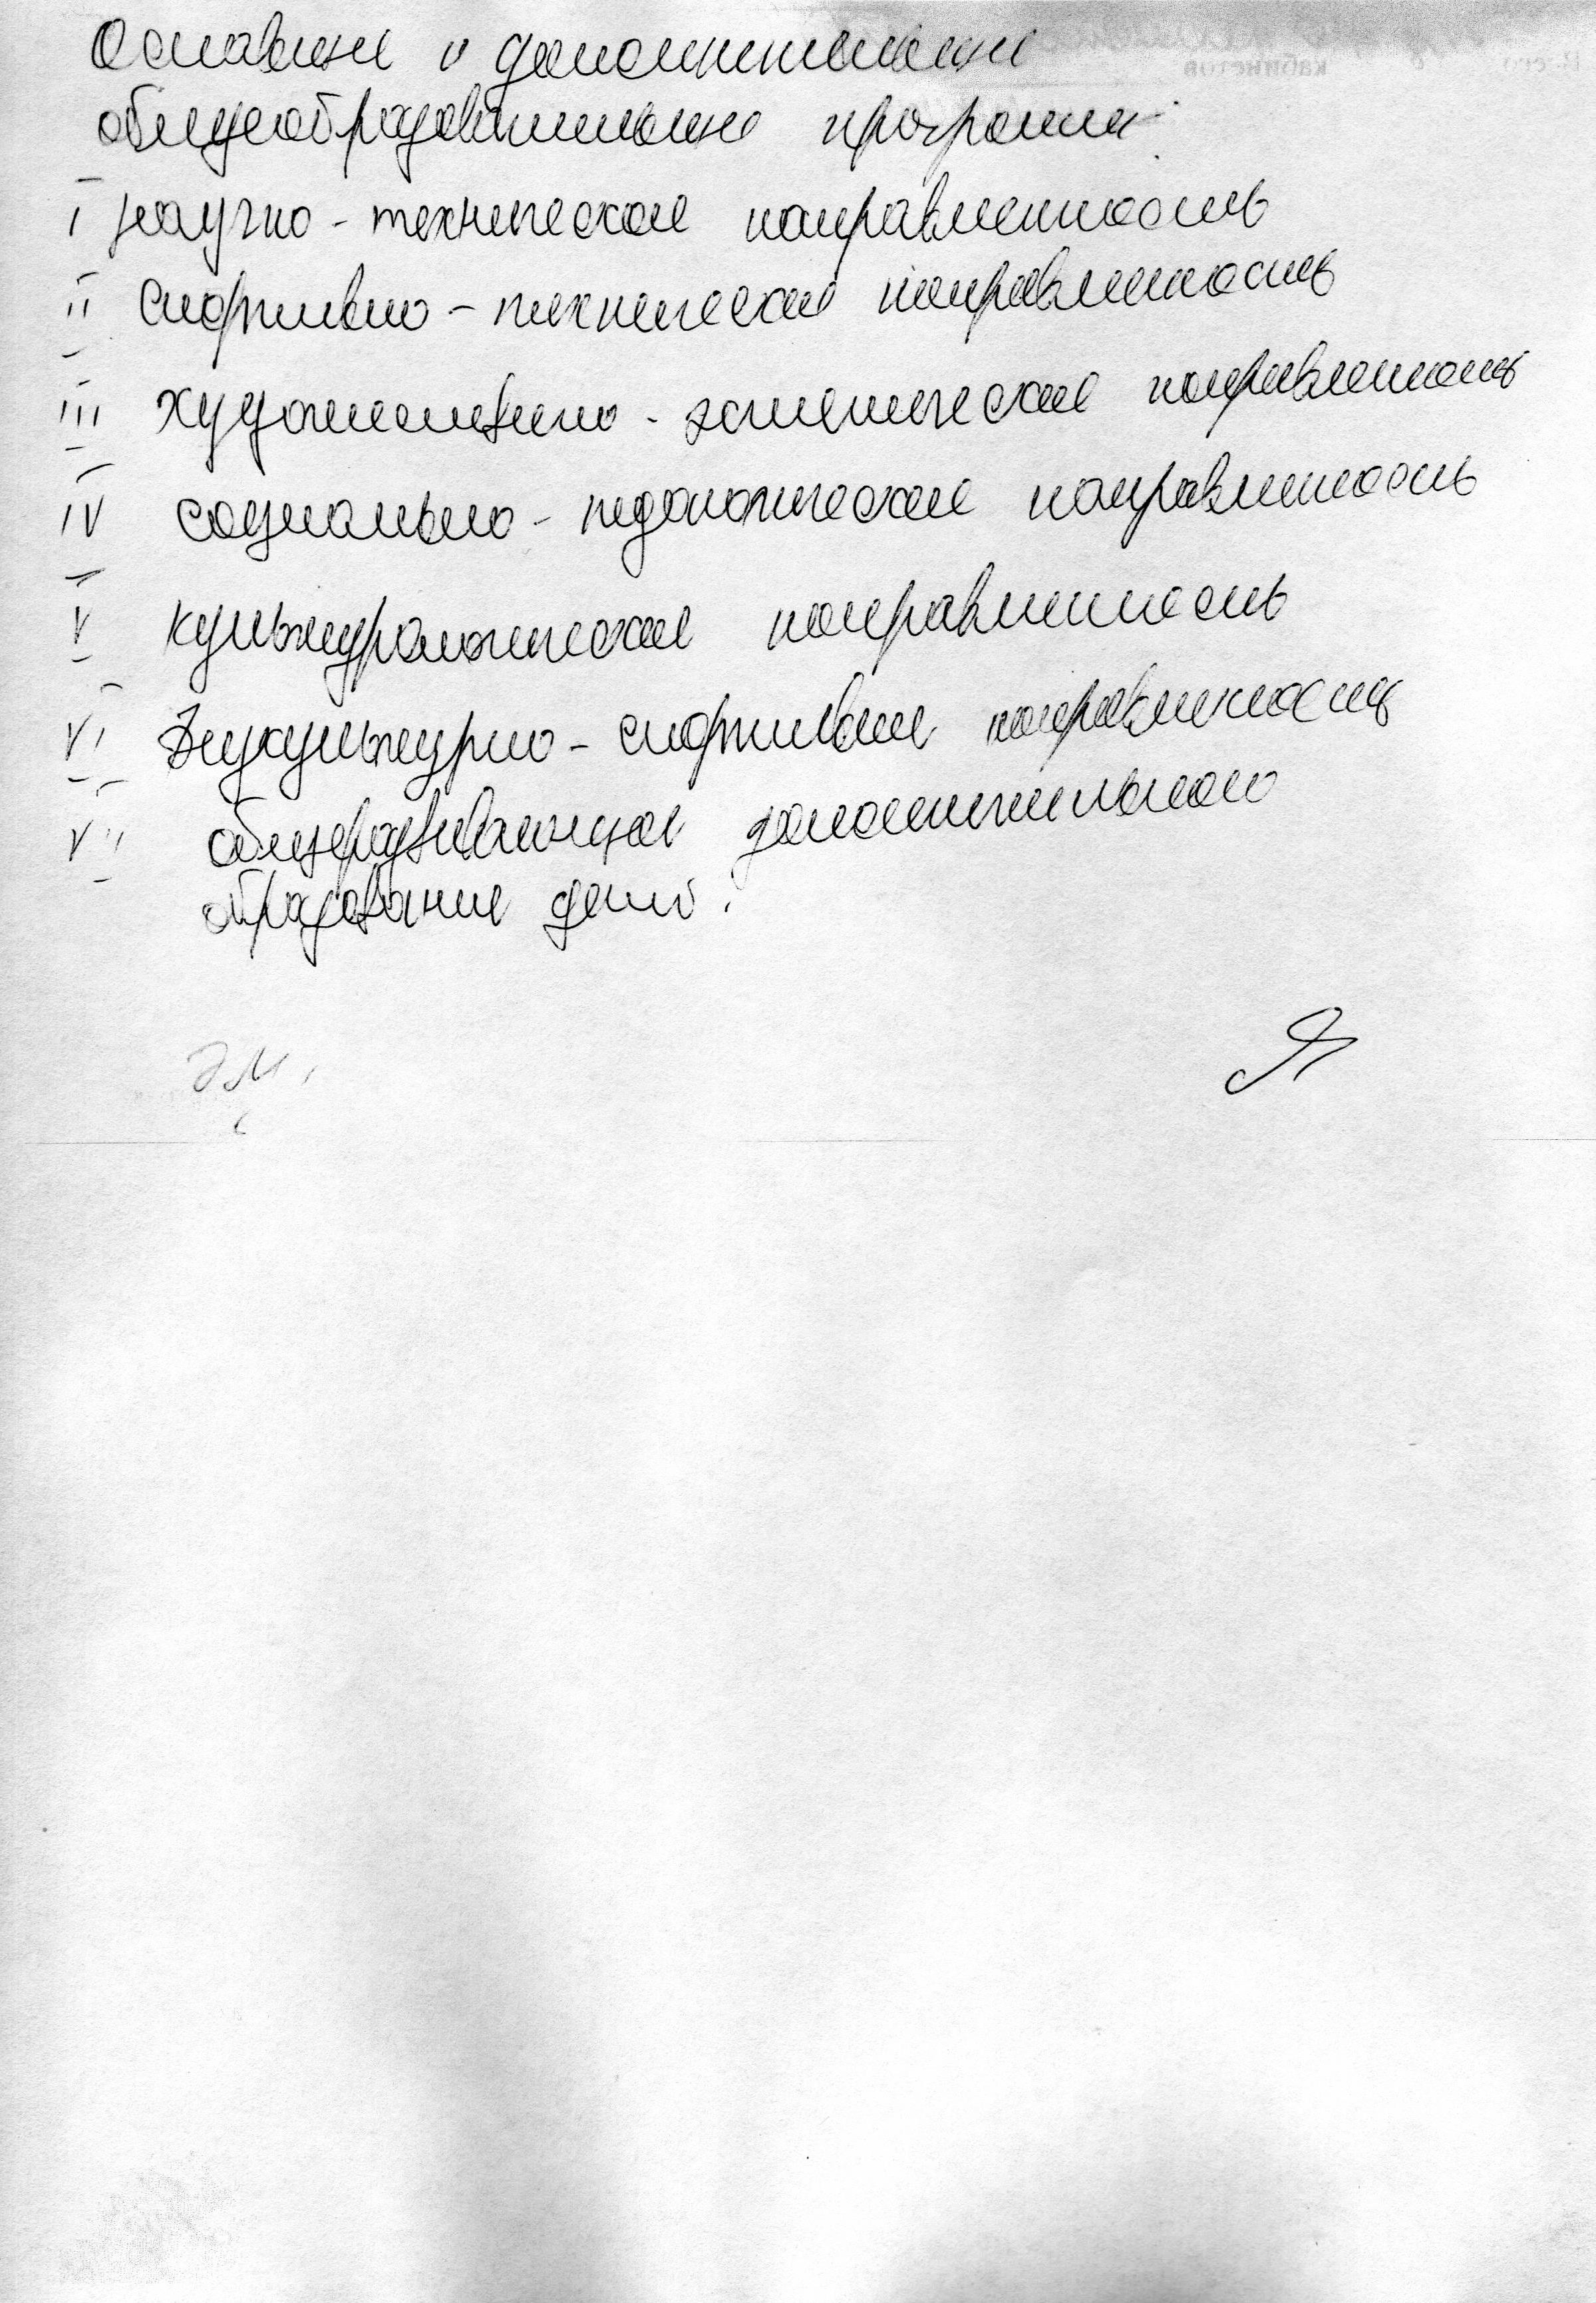 Основные и дополнительные
общеобразовательные программы:
I научно-техническая направленность
II спортивно-техническая направленность
III художественно-эстетическая направленность
IV социально-педагогическая направленность
V культурологическая направленность
VI физкультурно-спортивная направленность
VII общеразвивающая дополнительного
образования детей.
Я